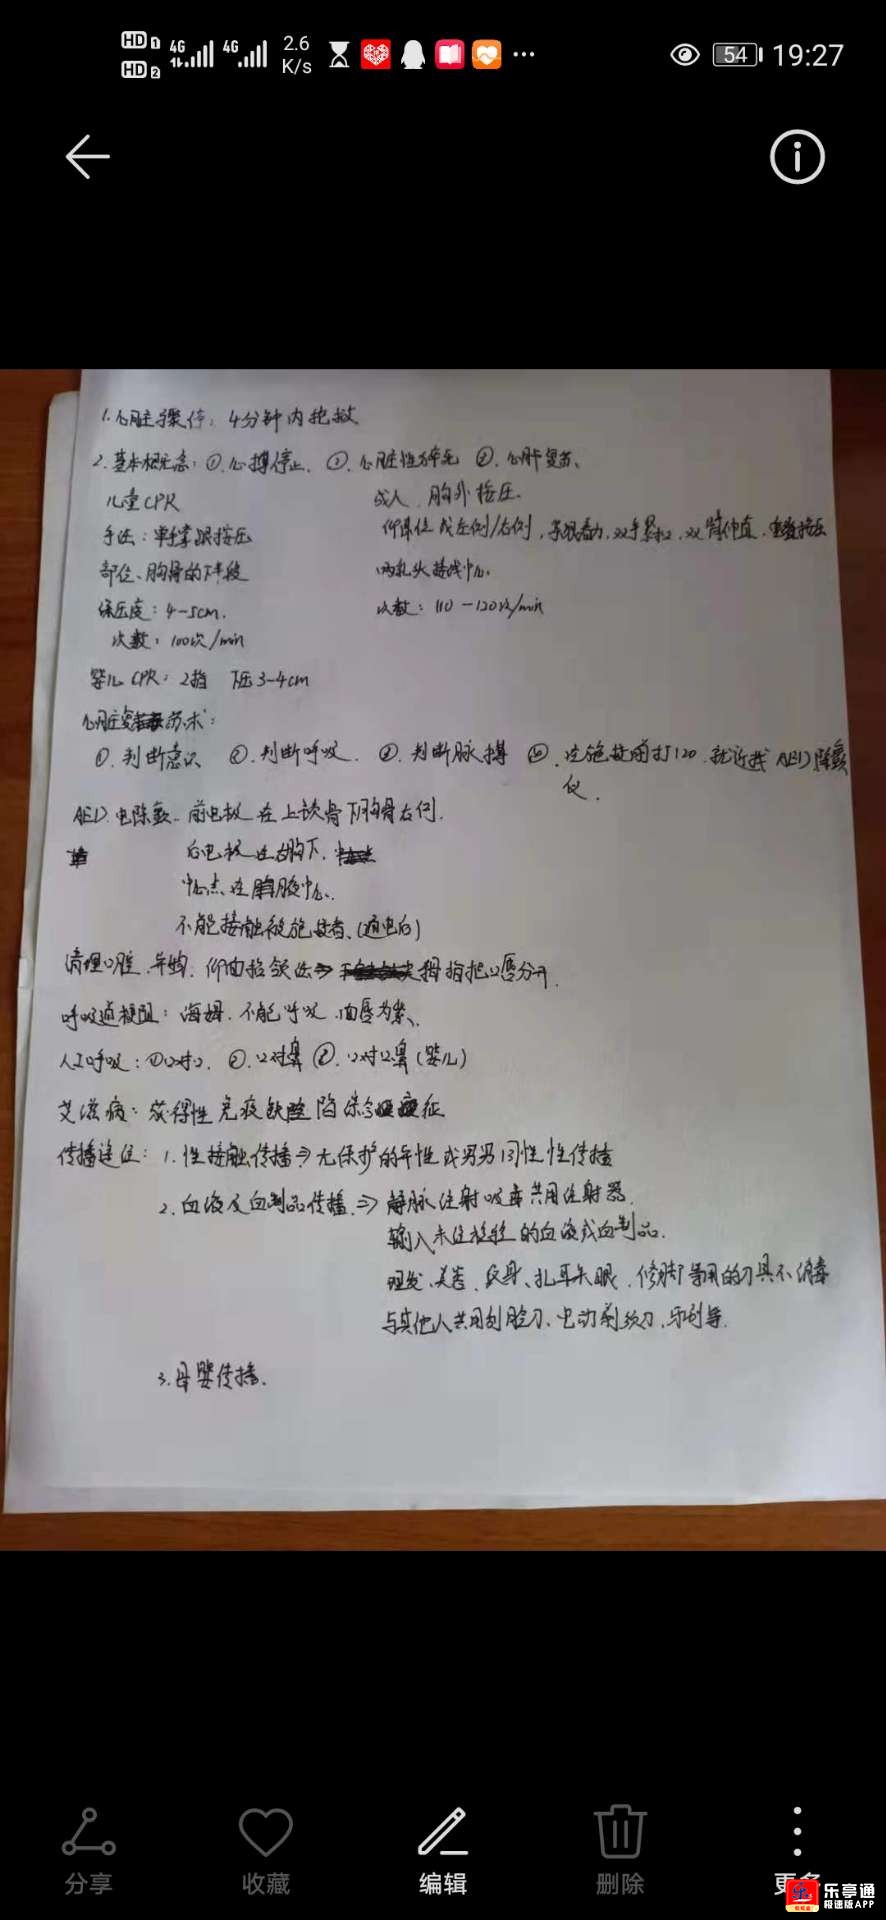 HD 1 4G 4G 2.6 54 19:27
HD 2 K/s
1.心脏骤停：4分钟内抢救
2.基本概念：①.心搏停止、②.心脏性猝死 ③.心肺复苏、
儿童CPR 成人、胸外按压.
手法：单手掌跟按压 仰卧位 或左侧/右侧，双手 ，双臂伸直，垂直按压
部位、胸骨的下半段 两乳头连线中心.
压度：4-5cm. 次数：110-120次/min
次数：100次/min
婴儿CPR：2指 下压3-4cm
心脏复苏术：
①.判断意识 ②.判断呼吸. ③.判断脉搏 ④.施救前打120.就近找AED除颤仪.
AED.电除颤.. 前电极在上锁骨下胸骨右侧.
后电极在左胸下.
中心点在腋中心.
不能接触被施救者.(通电后)
清理口腔.异物.仰面抬颌法⇒ 拇指把口唇分开.
呼吸道梗阻：海姆.不能呼吸.面唇为紫、
人工呼吸：①口对口.②.口对鼻 ③.口对口鼻(婴儿)
艾滋病：获得性免疫缺陷综合征
传播途径：1.性接触传播⇒无保护的异性或男男同性性传播
2.血液及血制品传播.⇒静脉注射吸毒共用注射器.
输入未经检验的血液或血制品.
理发、美容、纹身、扎耳朵眼.修脚等用的刀具不消毒
与其他人共用刮脸刀、电动剃须刀、牙刷等.
3.母婴传播.
分享 收藏 编辑 删除 更多
乐亭通
极速版APP